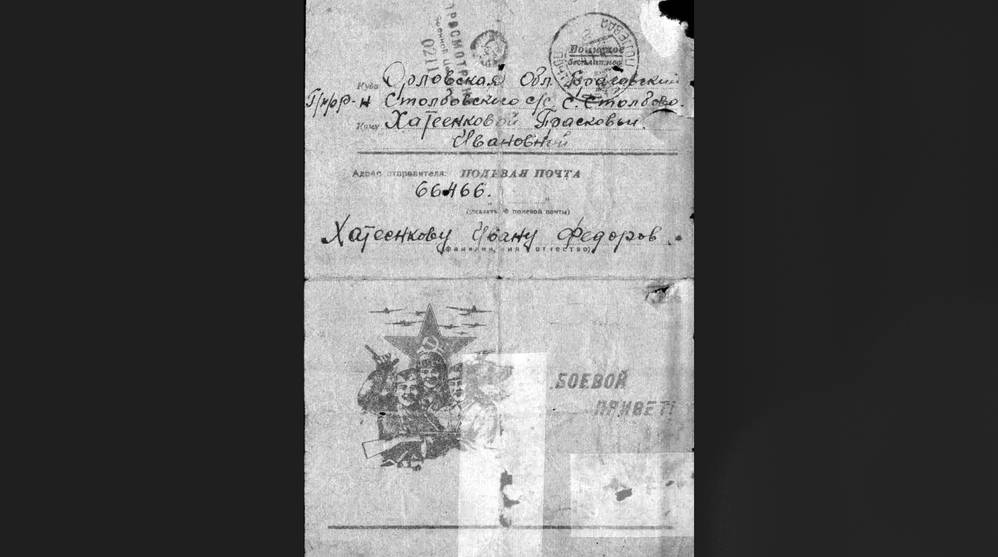 ПРОСМОТРЕНО
02117
Воинское
бесплатное
Куда Орловская обл. Брасовский
р-н Столбовского с/с с. Столбово.
Кому Хатеенковой Прасковьи
Ивановной
Адрес отправителя: ПОЛЕВАЯ ПОЧТА
66466.
(указать № полевой почты)
Хатеенкову Ивану Федоров
(фамилия, имя, отчество)
БОЕВОЙ
ПРИВЕТ!